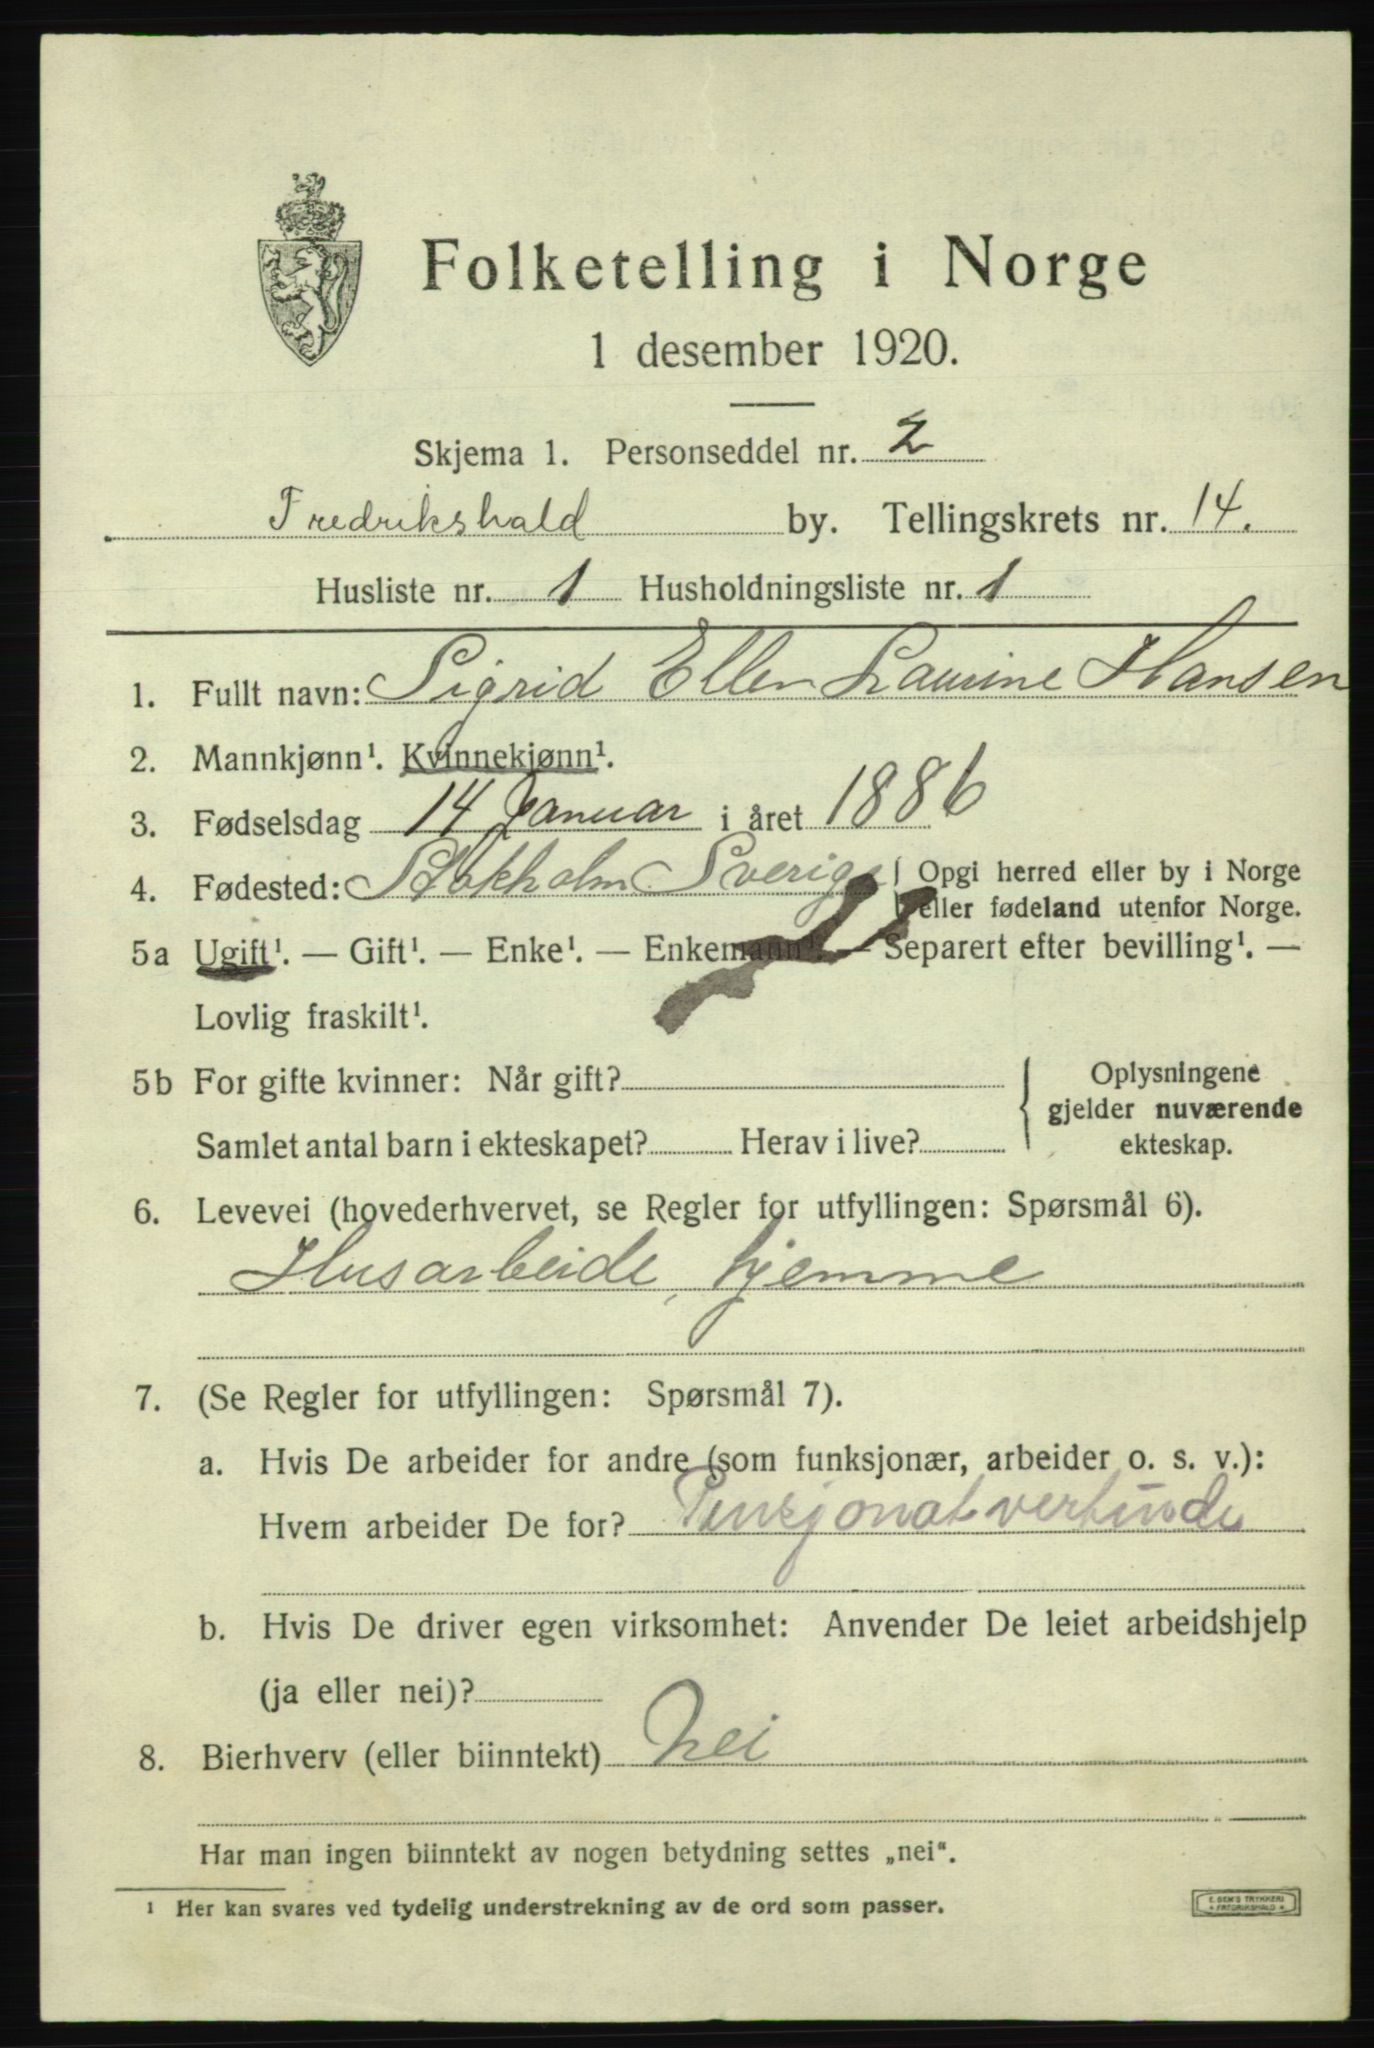 Folketelling i Norge
1 desember 1920.
Skjema 1. Personseddel nr. 2
Fredrikshald by. Tellingskrets nr. 14.
Husliste nr. 1 Husholdningsliste nr. 1
1. Fullt navn: Sigrid Ellen Laurine Hansen
2. Mannkjønn¹. Kvinnekjønn¹.
3. Fødselsdag 14 Januar i året 1886
4. Fødested: Stokholm Sverige { Opgi herred eller by i Norge
eller fødeland utenfor Norge.
5a Ugift¹. — Gift¹. — Enke¹. — Enkemann¹. — Separert efter bevilling¹. —
Lovlig fraskilt¹.
5b For gifte kvinner: Når gift? { Oplysningene
gjelder nuværende
Samlet antal barn i ekteskapet? Herav i live? ekteskap.
6. Levevei (hovederhvervet, se Regler for utfyllingen: Spørsmål 6).
Husarbeide, hjemme
7. (Se Regler for utfyllingen: Spørsmål 7).
a. Hvis De arbeider for andre (som funksjonær, arbeider o. s. v.):
Hvem arbeider De for? Pensjonatvertinde
b. Hvis De driver egen virksomhet: Anvender De leiet arbeidshjelp
(ja eller nei)?
8. Bierhverv (eller biinntekt) Nei
Har man ingen biinntekt av nogen betydning settes „nei“.
¹ Her kan svares ved tydelig understrekning av de ord som passer.
E. SEM'S TRYKKERI
FREDRIKSHALD